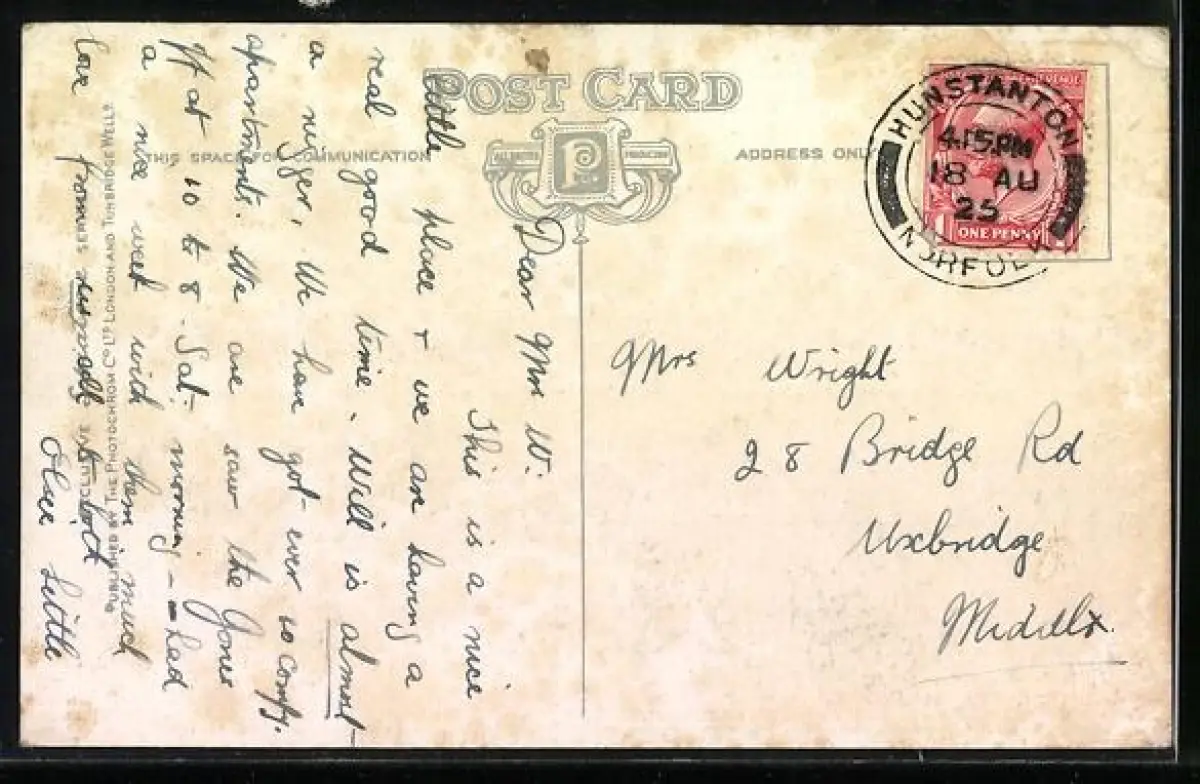 POST CARD
THIS SPACE FOR COMMUNICATION
ADDRESS ONLY
ALL BRITISH PRODUCTION
P
HUNSTANTON
4.15PM
18 AU
25
NORFOLK
ONE PENNY
Dear Mrs W.
This is a nice
little place + we are having a
real good time. Will is almost
a nigger, We have got ever so comfy.
apartments. We are saw the Jones
off at 10 to 8. Sat. morning - Had
a nice week with them, much
love from
Little
PUBLISHED BY THE PHOTOCHROM CO LTD LONDON AND TUNBRIDGE WELLS
EXCLUSIVE SERIES
Mrs Wright
28 Bridge Rd
Uxbridge
Middlx.